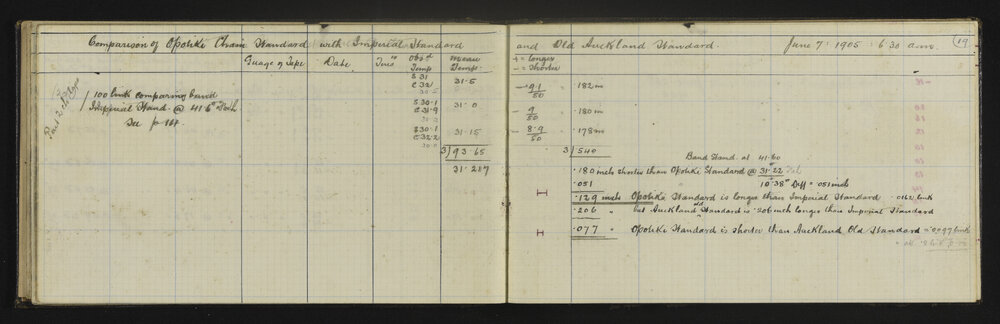 Comparison of Opotiki Chain Standard with Imperial Standard
Guage of Tape Date Time Obsd Temp Mean Temp.
100 link comparing band
Imperial Stand. @ 41.6° Fath
See p 167.
S 31
C 32
31.5
S 30.1
C 31.9
31.0
S 30.1
C 32.2
31.15
3) 93.65
31.217
and Old Auckland Standard. June 7th 1905 6.30 a.m. 19
+ = longer
- = shorter
- 9.1/50 .182 in
- 9/50 .180 in
- 8.9/50 .178 in
3) 540
Band Stand. at 41.60
.180 inch shorter than Opotiki Standard @ 31.22
.051 10.38° Diff = .051 inch
.129 inch Opotiki Standard is longer than Imperial Standard .0162 link
.206 " but Auckland old Standard is .206 inch longer than Imperial Standard
.077 " Opotiki Standard is shorter than Auckland Old Standard = .0097 link